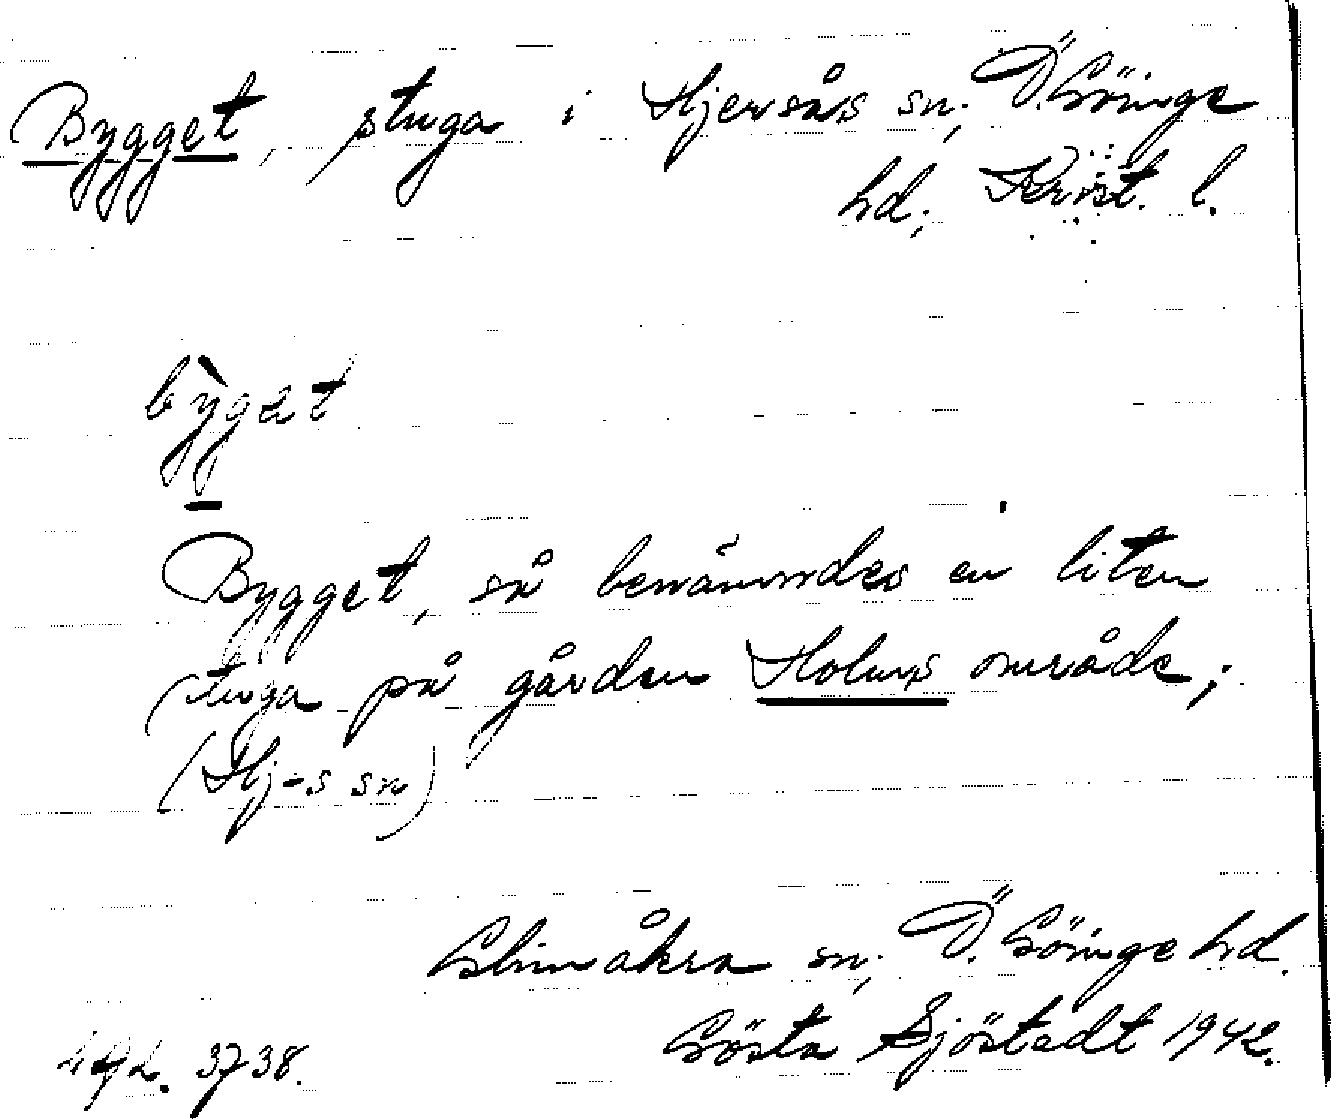 Bygget, stuga i Hjersås sn, Ö. Göinge
hd, Krist. l.
bỳget
Bygget, så benämndes en liten
stuga på gården Holms område;
(Hj-s sn)
Glimåkra sn, Ö. Göinge hd.
Gösta Sjöstedt 1942.
3738.